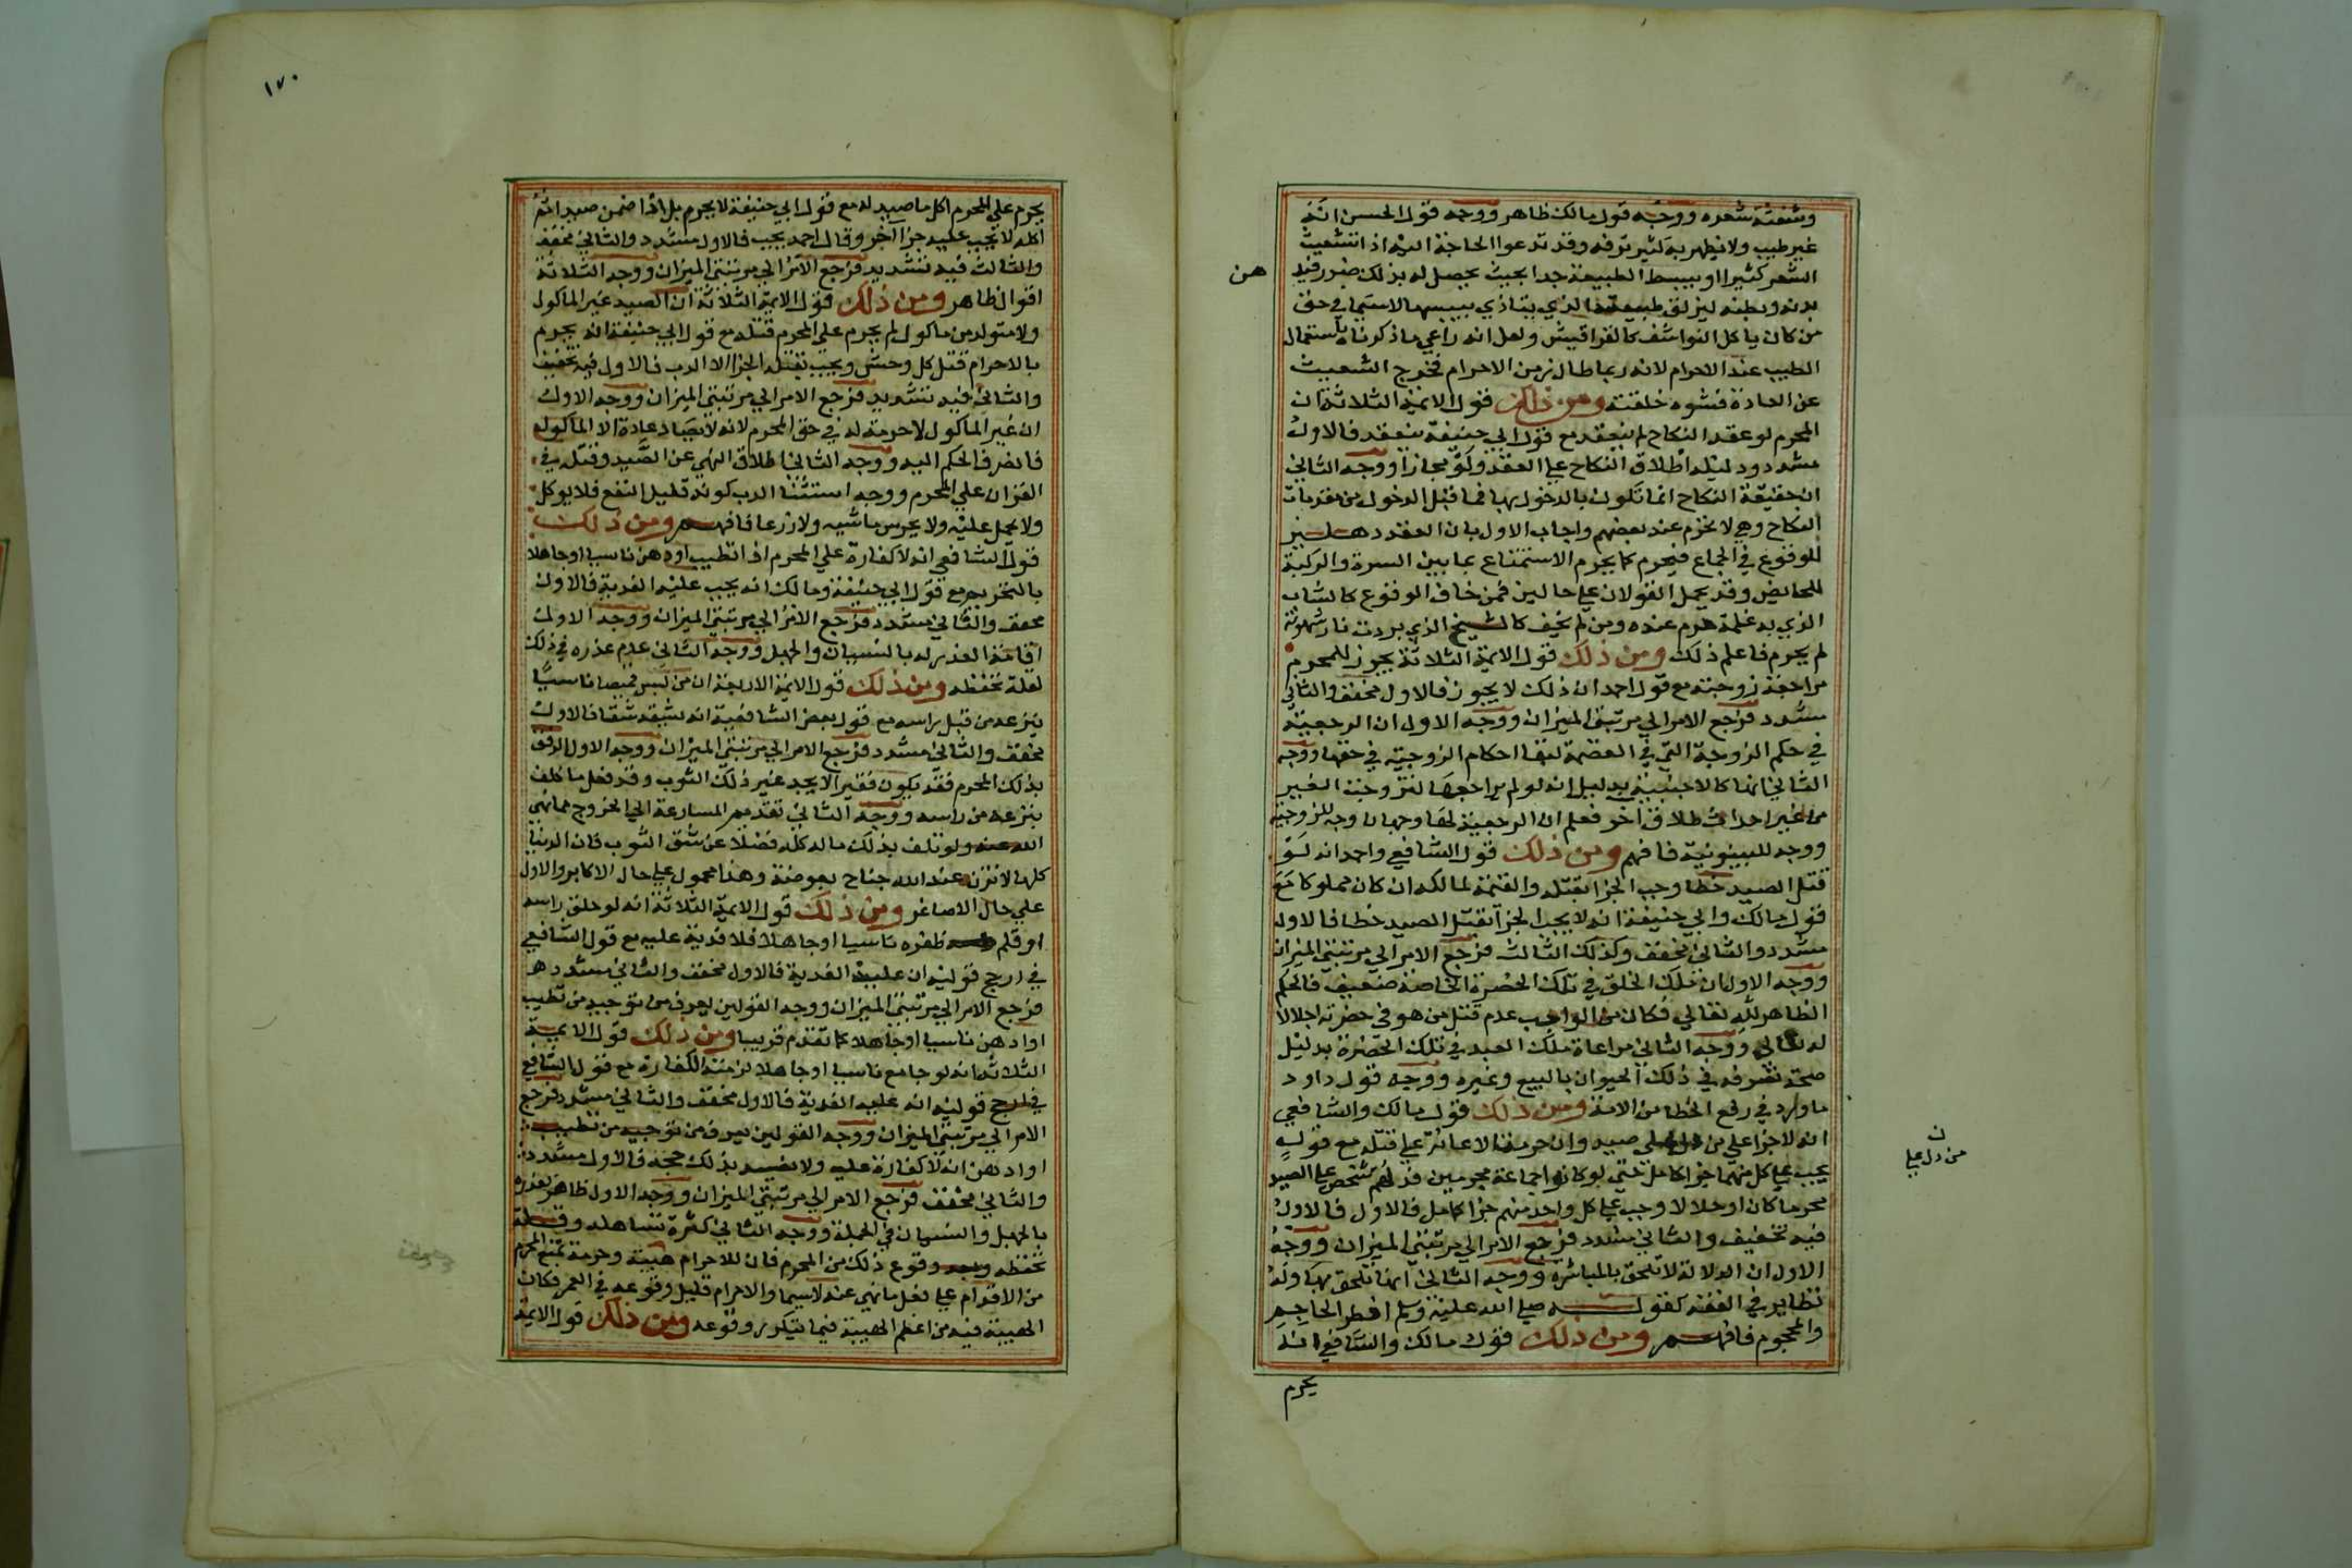 وشعثة شعره ووجه قول مالك ظاهر ووجه قول الحسن انه
غير طيب ولا يظهر به كثير ترفه وقد تدعوا الحاجة اليه اذا تشعيث
الشعر كثيرا او يبسط الطبيعة جدا بحيث يحصل له بذلك ضرر في
هن
بدنه وبطنه ليزلق طبيعته الذي يتاذي بيبسها لاسيما في حق
من كان ياكل النواشف كالقراقيش ولعل انه راعي ما ذكرناه باستعمال
الطيب عند الاحرام لانه ربما طال زمن الاحرام فخرج الشعيث
عن العادة فشوه خلقته ومن ذلك قول الايمة الثلاثة ان
المحرم لو عقد النكاح لم ينعقد مع قول ابي حنيفة ينعقد فالاول
مشدد ودليله اطلاق النكاح علي العقد ولو مجازا ووجه الثاني
ان حقيقة النكاح انما تكون بالدخول بها فما قبل الدخول من مقدمات
النكاح وهي لا تحرم عند بعضهم واجاب الاول بان العقد دهليز
للوقوع في الجماع فيحرم كما يحرم الاستمتاع بما بين السرة والركبة
للحايض وقد يحمل القولان علي حالين فمن خاف الوقوع كالشاب
الذي به غلمة حرم عنده ومن لم يخف كالشيخ الذي بردت نار شهوته
لم يحرم فاعلم ذلك ومن ذلك قول الايمة الثلاثة يجوز للمحرم
مراجعة زوجته مع قول احمد ان ذلك لا يجوز فالاول مخفف والثاني
مشدد فرجع الامر الي مرتبتي الميزان ووجه الاول ان الرجعية
في حكم الزوجة التي في العصمة لبقا احكام الزوجية في حقها ووجه
الثاني انها كالاجنبية بدليل انه لو لم يراجعها لتزوجت الغير
من غير احداث طلاق اخر فعلم ان الرجعية لها وجهان وجه للزوجية
ووجه للبينونية فافهم ومن ذلك قول الشافعي واحمد انه لو
قتل الصيد خطا وجب الجزا بقتله والقيمة لمالكه ان كان مملوكا مع
قول مالك وابي حنيفة انه لا يجب الجزا بقتل الصيد خطا فالاول
مشدد والثاني مخفف وكذلك الثالث فرجع الامر الي مرتبتي الميزان
ووجه الاول ان ملك الخلق في تلك الحضرة الخاصة ضعيف فالحكم
الظاهر لله تعالي فكان من الواجب عدم قتل من هو في حضرته اجلالا
له تعالي ووجه الثاني مراعاة ملك العبد في تلك الحضرة بدليل
صحة تصرفه في ذلك الحيوان بالبيع وغيره ووجه قول داود
ما ورد في رفع الخطا عن الامة ومن ذلك قول مالك والشافعي
انه لا جزا علي من دل علي صيد وان حرمت الاعانة علي قتله مع قوله
ن
من دل علي
يجب علي كل منهما جزا كامل حتي لو كانوا جماعة محرمين فدلهم شخص علي الصيد
محرما كان او حلالا وجب علي كل واحد منهم جزا كامل فالاول فالاول
فيه تخفيف والثاني مشدد فرجع الامر الي مرتبتي الميزان ووجه
الاول ان الدلالة لا تلحق بالمباشرة ووجه الثاني انها تلحق بها وله
نظاير في الفقه كقوله صلي الله عليه وسلم افطر الحاجم
والمحجوم فافهم ومن ذلك قول مالك والشافعي انه
يحرم
١٧٠
يحرم علي المحرم اكل ما صيد له مع قول ابي حنيفة لا يحرم بل اذا ضمن صيدا ثم
اكله لا يجب عليه جزا اخر وقال احمد يجب فالاول مشدد والثاني مخفف
والثالث فيه تشديد فرجع الامر الي مرتبتي الميزان ووجه الثلاثة
اقوال ظاهر ومن ذلك قول الايمة الثلاثة ان الصيد غير الماكول
ولا متولد من ماكول لم يحرم علي المحرم قتله مع قول ابي حنيفة انه يحرم
بالاحرام قتل كل وحش ويجب بقتله الجزا الا الدب فالاول فيه تخفيف
والثاني فيه تشديد فرجع الامر الي مرتبتي الميزان ووجه الاول
ان غير الماكول لا حرمة له في حق المحرم لانه لا يصاد عادة الا الماكول
فانصرف الحكم اليه ووجه الثاني اطلاق النهي عن الصيد وقتله في
القران علي المحرم ووجه استثنا الدب كونه قليل النفع فلا يوكل
ولا يحمل عليه ولا يحرس ماشيه ولا زرعا فافهم ومن ذلك
قول الشافعي انه لا كفارة علي المحرم اذا تطيب او دهن ناسيا او جاهلا
بالتحريم مع قول ابي حنيفة ومالك انه يجب عليه الفدية فالاول
مخفف والثاني مشدد فرجع الامر الي مرتبتي الميزان ووجه الاول
اقامة العذر له بالنسيان والجهل ووجه الثاني عدم عذره في ذلك
لقلة تحفظه ومن ذلك قول الايمة الاربعة ان من لبس قميصا ناسيا
ينزعه من قبل راسه مع قول بعض الشافعية انه يشقه شقا فالاول
مخفف والثاني مشدد فرجع الامر الي مرتبتي الميزان ووجه الاول الرفق
بذلك المحرم فقد يكون فقيرا لا يجد غير ذلك الثوب وقد فعل ما كلف
بنزعه من راسه ووجه الثاني تقديم المسارعة الي الخروج مما نهي
الله عنه ولو تلف بذلك ماله كله فضلا عن شق الثوب فان الدنيا
كلها لا تزن عند الله جناح بعوضة وهذا محمول علي حال الاكابر والاول
علي حال الاصاغر ومن ذلك قول الايمة الثلاثة انه لو حلق راسه
او قلم ظفره ناسيا او جاهلا فلا فدية عليه مع قول الشافعي
في ارجح قوليه ان عليه الفدية فالاول مخفف والثاني مشدد
فرجع الامر الي مرتبتي الميزان ووجه القولين يعرف من توجيه من تطيب
او ادهن ناسيا او جاهلا كما تقدم قريبا ومن ذلك قول الايمة
الثلاثة انه لو جامع ناسيا او جاهلا لزمته الكفارة مع قول الشافعي
في ارجح قوليه انه عليه الفدية فالاول مخفف والثاني مشدد فرجع
الامر الي مرتبتي الميزان ووجه القولين يعرف من توجيه من تطيب
او ادهن انه لا كفارة عليه ولا يفسد بذلك حجه فالاول مشدد
والثاني مخفف فرجع الامر الي مرتبتي الميزان ووجه الاول ظاهر بعذره
بالجهل والنسيان في الجملة ووجه الثاني كثرة تساهله وقلة
تحفظه وقوع ذلك من المحرم فان للاحرام هيبة وحرمة تمنع المحرم
من الاقدام علي فعل ما نهي عنه لاسيما والاحرام قليل وقوعه في العمر فكان
الهيبة فيه من اعظم الهيبة فيما يتكرر وقوعه ومن ذلك قول الايمة